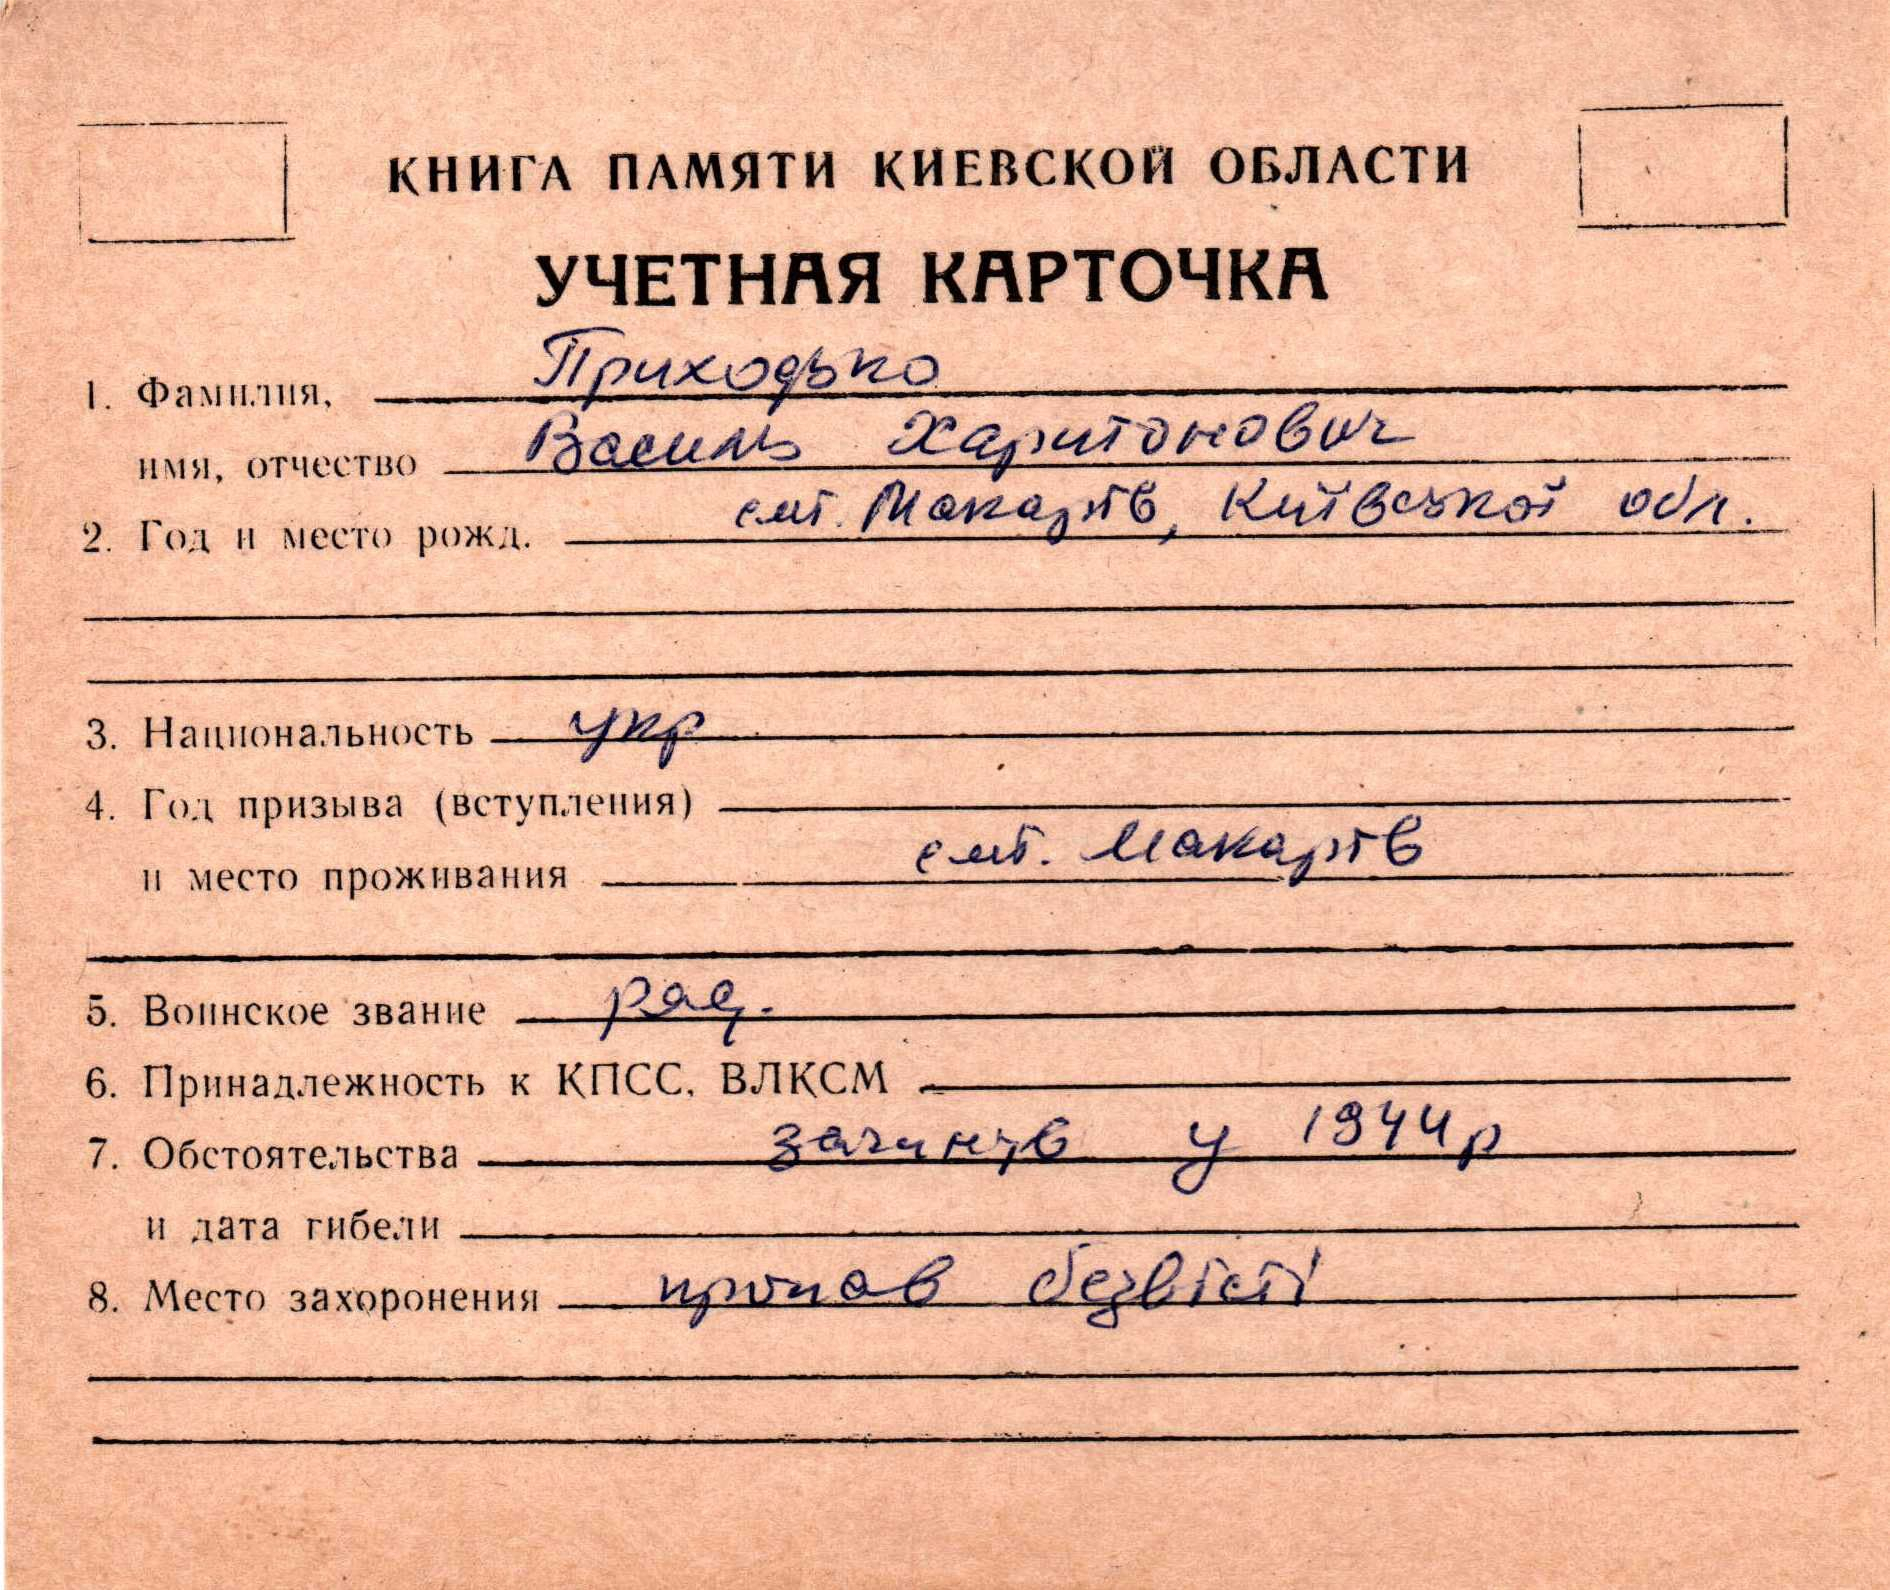 КНИГА ПАМЯТИ КИЕВСКОЙ ОБЛАСТИ
УЧЕТНАЯ КАРТОЧКА
1. Фамилия, Приходько
имя, отчество Василь Харитонович
2. Год и место рожд. смт. Макарів, Київської обл.
3. Национальность укр
4. Год призыва (вступления)
и место проживания смт. Макарів
5. Воинское звание ряд.
6. Принадлежность к КПСС, ВЛКСМ
7. Обстоятельства загинув у 1944р
и дата гибели
8. Место захоронения пропав безвісті